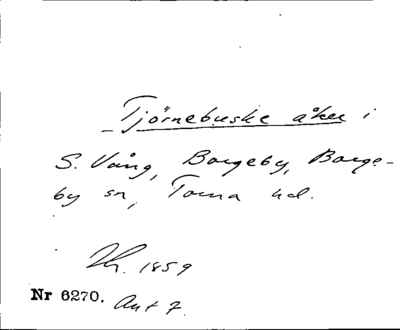 Tjörnebuske åker i
S. Vång, Borgeby, Borge-
by sn, Torna hd.
1859
Nr 6270. Ant 7.